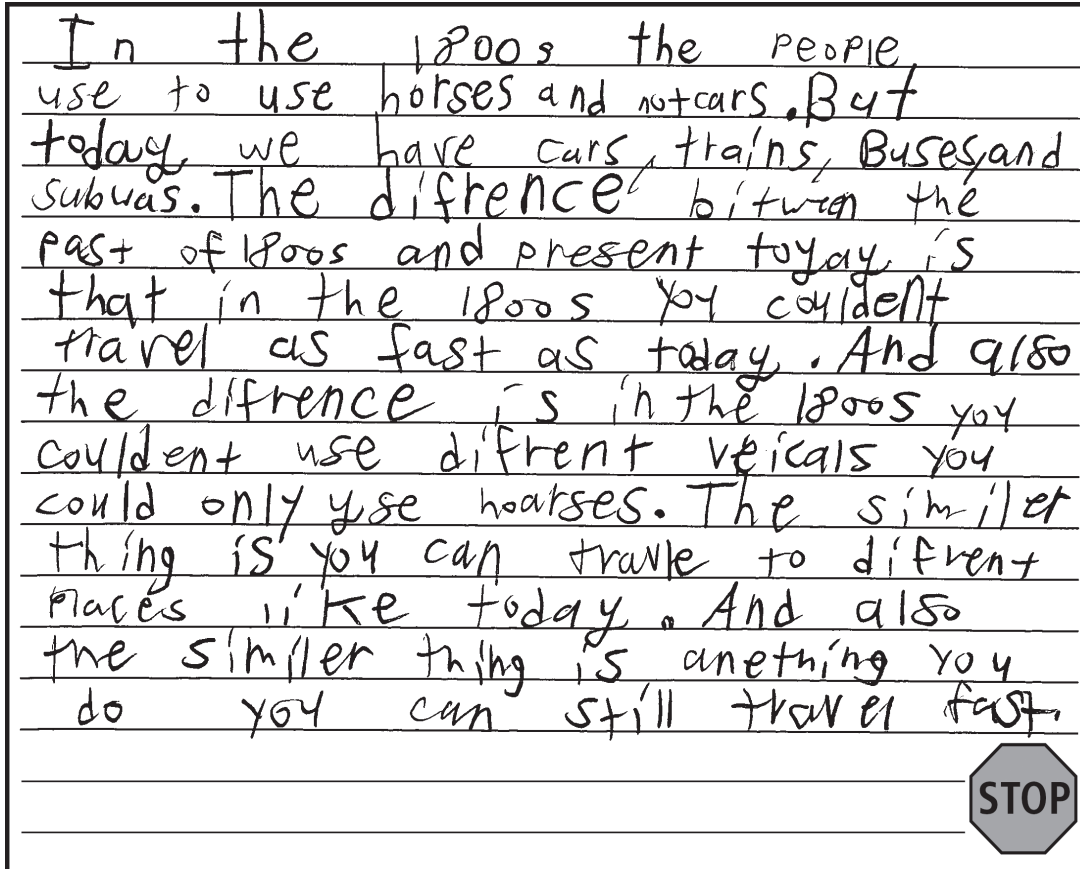 In the 1800s the people
use to use horses and not cars. But
today we have cars, trains, Buses, and
subwas. The difrence bitwen the
past of 1800s and present toyay is
that in the 1800s you couldent
travel as fast as today. And also
the difrence is in the 1800s you
couldent use difrent veicals you
could only use hoarses. The similer
thing is you can travle to difrent
places like today. And also
the similer thing is anething you
do you can still travel fast.
STOP